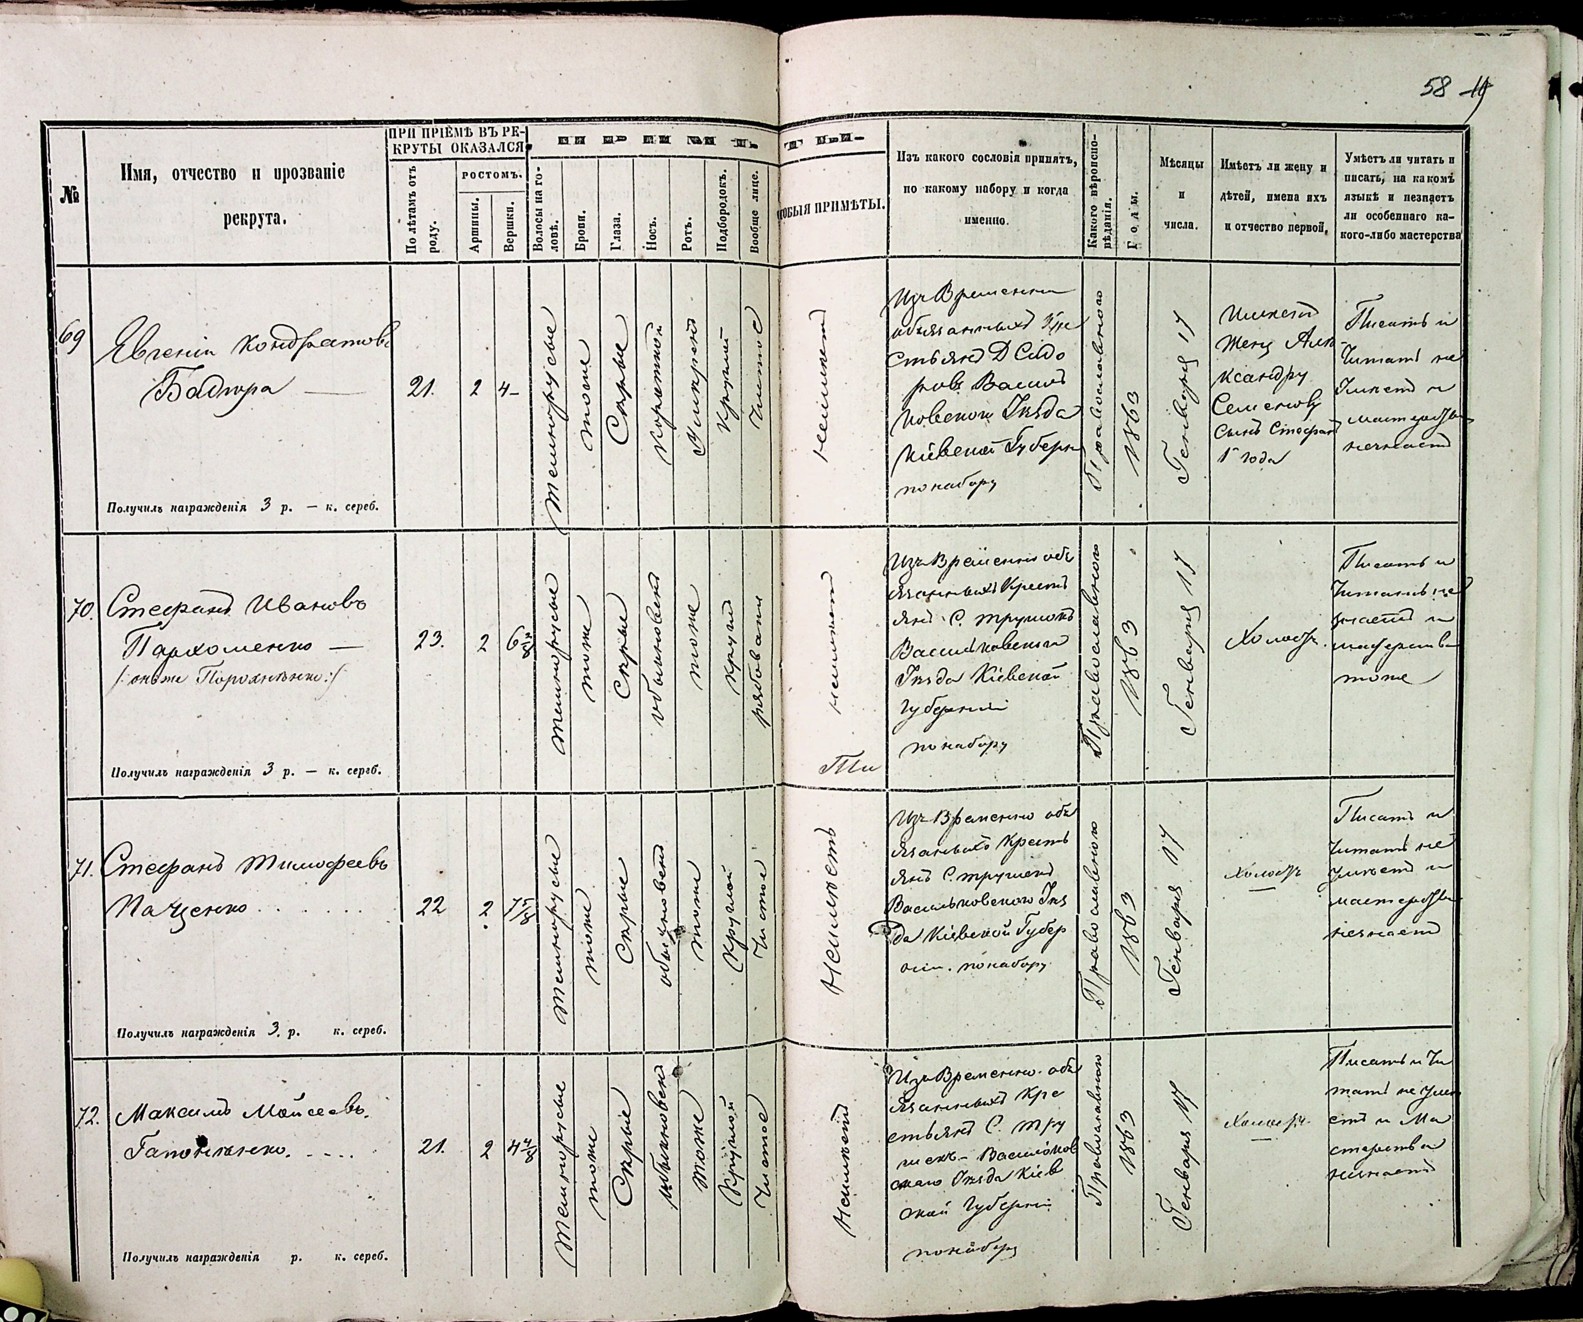 58
№
Имя, отчество и прозваніе
рекрута.
ПРИ ПРІЕМѢ ВЪ РЕ-
КРУТЫ ОКАЗАЛСЯ
По лѣтамъ отъ
роду.
РОСТОМЪ.
Аршины.
Вершки.
Волосы на го-
ловѣ.
Брови.
Глаза.
Носъ.
Ротъ.
Подбородокъ.
Вообще лице.
ПРИМѢТЫ.
Изъ какого сословія принятъ,
по какому набору и когда
именно.
Какого вѣроиспо-
вѣданія.
Годы.
Мѣсяцы
и
числа.
Имѣетъ ли жену и
дѣтей, имена ихъ
и отчество первой,
Умѣетъ ли читать и
писать, на какомъ
языкѣ и незнаетъ
ли особеннаго ка-
кого-либо мастерства
69
Евгеній Кондратовъ
Бадюра
Получилъ награжденія 3 р. — к. сереб.
21.
2
4 —
Темнорусые
тоже
Сѣрые
Умѣрен
Круглый
Чистое
неимѣетъ
Изъ Временно
обязанныхъ Кре
стьянъ Д Сидо
ровъ Василь
ковскаго Уѣзда
Кіевской Губерн
по набору
Православнаго
1863
Генваря 17
Имѣетъ
Жену Але
ксандру
Семенову
Сынъ Стефан
1 года
Писать и
Читать не
Умѣетъ и
мастерства
незнаетъ
70.
Стефанъ Ивановъ
Пархоменко —
Получилъ награжденія 3 р. — к. сереб.
23.
2
6
Темнорусые
тоже
Сѣрые
обыкновен
тоже
Кругл
рябоватое
неимѣетъ
Изъ Временно объ
язанныхъ Крест
янъ С. Трушокъ
Васильковскаго
Уѣзда Кіевской
Губерніи
по набору
Православнаго
1863
Генваря 17
Холостъ.
Писать и
Читать не
умѣетъ и
мастерства
тоже
71.
Стефанъ Тимофеевъ
Пащенко
Получилъ награжденія 3 р. к. сереб.
22
2
7 5/8
Темнорусые
тоже
Сѣрые
обыкновен
тоже
Круглый
Чистое
Неимѣетъ
Изъ Временно объ
язанныхъ Крест
янъ С. Трушекъ
Васильковскаго Уѣз
да Кіевской Губер
ніи. по набору
Православнаго
1863
Генваря 17
Холостъ
Писать и
Читать не
Умѣетъ и
мастерства
незнаетъ
72.
Максимъ Мойсеевъ.
Гапоненко.
Получилъ награжденія р. к. сереб.
21.
2
4 4/8
Темнорусые
тоже
Сѣрые
обыкновен
тоже
Круглый
Чистое
Неимѣетъ
Изъ Временно объ
язанныхъ Кре
стьянъ С. Тру
шекъ — Васильков
скаго Уѣзда Кіев
ской Губерніи
по набору
Православнаго
1863
Генваря 17
Холостъ.
Писать и Чи
тать не Умѣ
етъ и Ма
стерства
незнаетъ